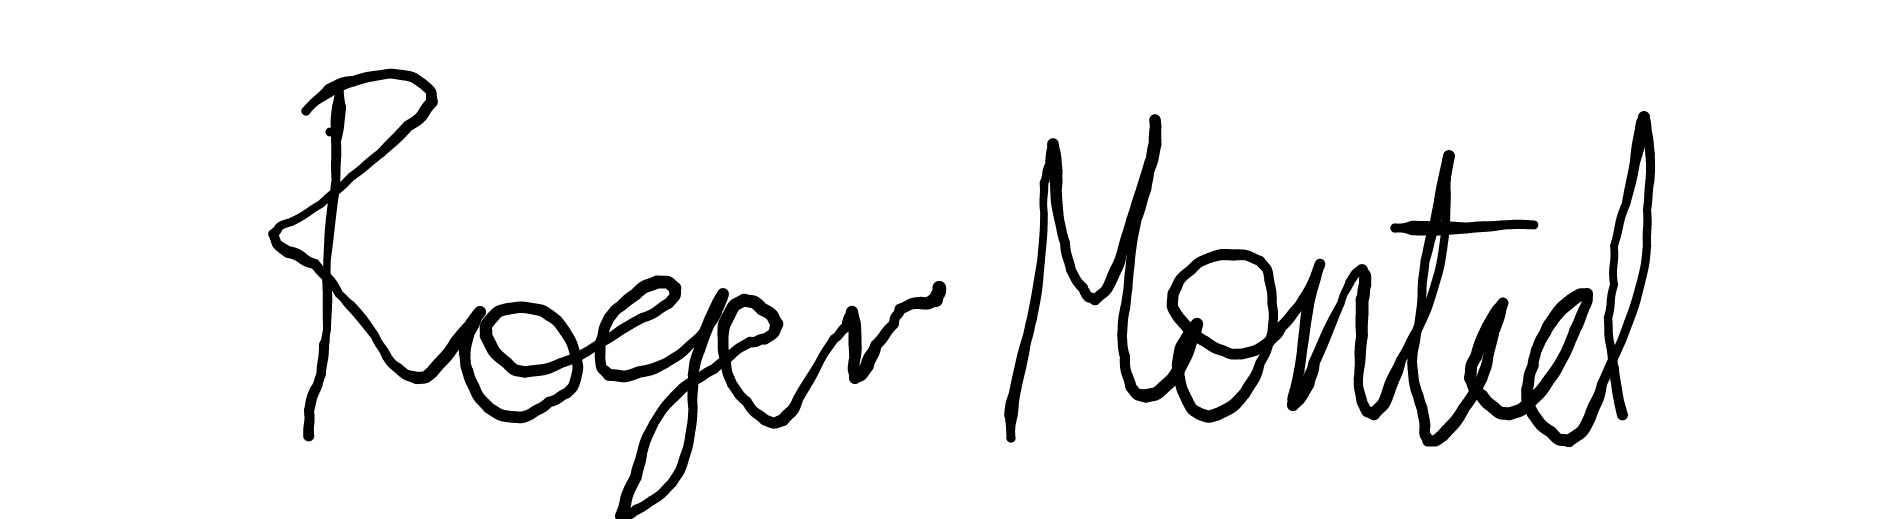 Roger Montiel